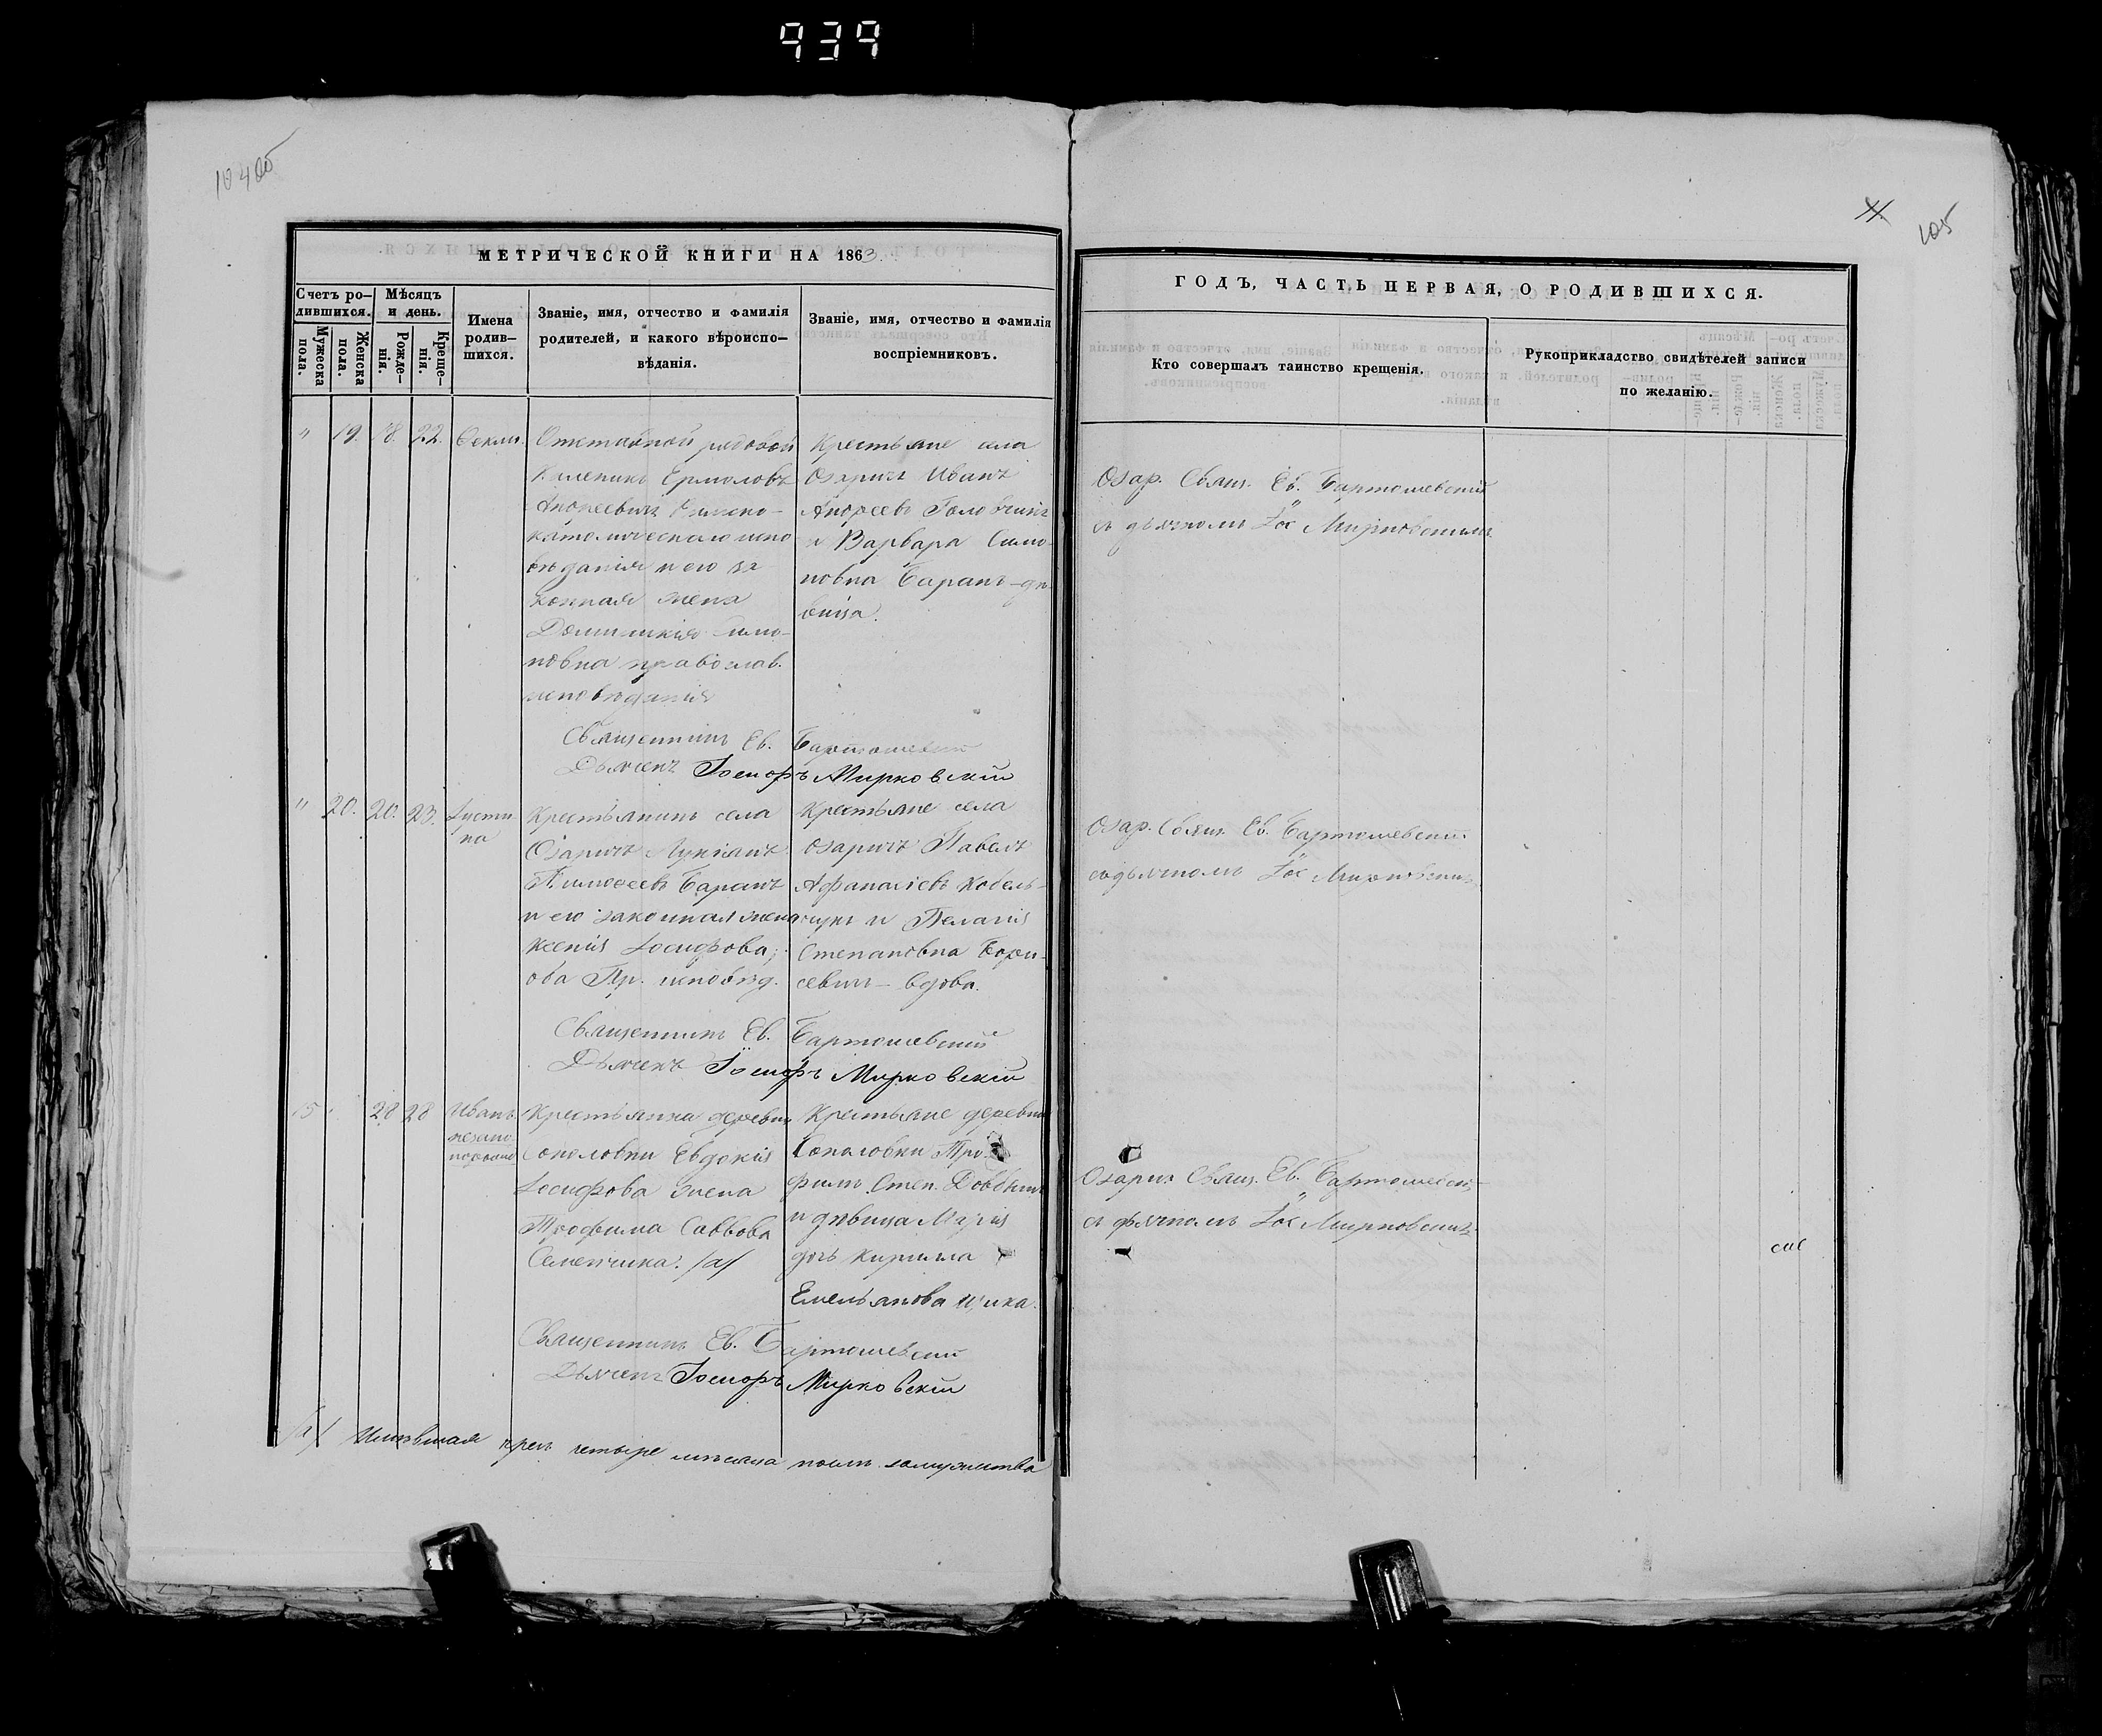 939
105
МЕТРИЧЕСКОЙ КНИГИ НА 1863
Счетъ ро-
дившихся.
Мужеска
пола.
Женска
пола.
Мѣсяцъ
и день.
Рожде-
нія.
Креще-
нія.
Имена
родив-
шихся.
Званіе, имя, отчество и фамилія
родителей, и какого вѣроиспо-
вѣданія.
Званіе, имя, отчество и фамилія
воспріемниковъ.
ГОДЪ, ЧАСТЬ ПЕРВАЯ, О РОДИВШИХСЯ.
Кто совершалъ таинство крещенія.
Рукоприкладство свидѣтелей записи
по желанію.
" 19. 18. 22.
Отставной рядовой
Ермоловъ
Андреевичъ Римско-
католическаго испо
вѣданія и его за
конная жена
Домникія
новна православ.
исповѣданія
Крестьяне села
Озаричъ Иванъ
Андреевъ Головчикъ
и Варвара Симо
новна Баранъ - дѣ
вица.
Озар. Свящ. Ев. Бартошевскій
съ дьячкомъ Іос Мирковскимъ
Священникъ Ев. Бартошевскій
Дьячекъ Іосифъ Мирковскій
" 20. 20. 23.
Іусти
на
Крестьянинъ села
Озаричъ Лукіанъ
Тимофеевъ Баранъ
и его законная жена
Ксенія Іосифова;
оба Пр. исповѣд.
Крестьяне села
Озаричъ Павелъ
Афанасіевъ Кобель-
чукъ и Пелагія
Степановна Бори-
севичъ - вдова.
Озар. Свящ. Ев. Бартошевскій
съ дьячкомъ Іос Мирковскимъ
Священникъ Ев. Бартошевскій
Дьячекъ Іосифъ Мирковскій
15 28 28
Иванъ
незако
Крестьянка деревни
Соколовки Евдокія
Іосифова жена
Трофима Саввова
Семенчика. /а/
Крестьяне деревни
Соколовки Тро
фимъ Степ.
и дѣвица Марія
дочь Кирилла
Емельянова
Озарич. Свящ. Ев. Бартошевскій
съ дьячкомъ Іос Мирковскимъ
Священникъ Ев. Бартошевскій
Дьячекъ Іосифъ Мирковскій
/а/ четыре мѣсяца послѣ замужества